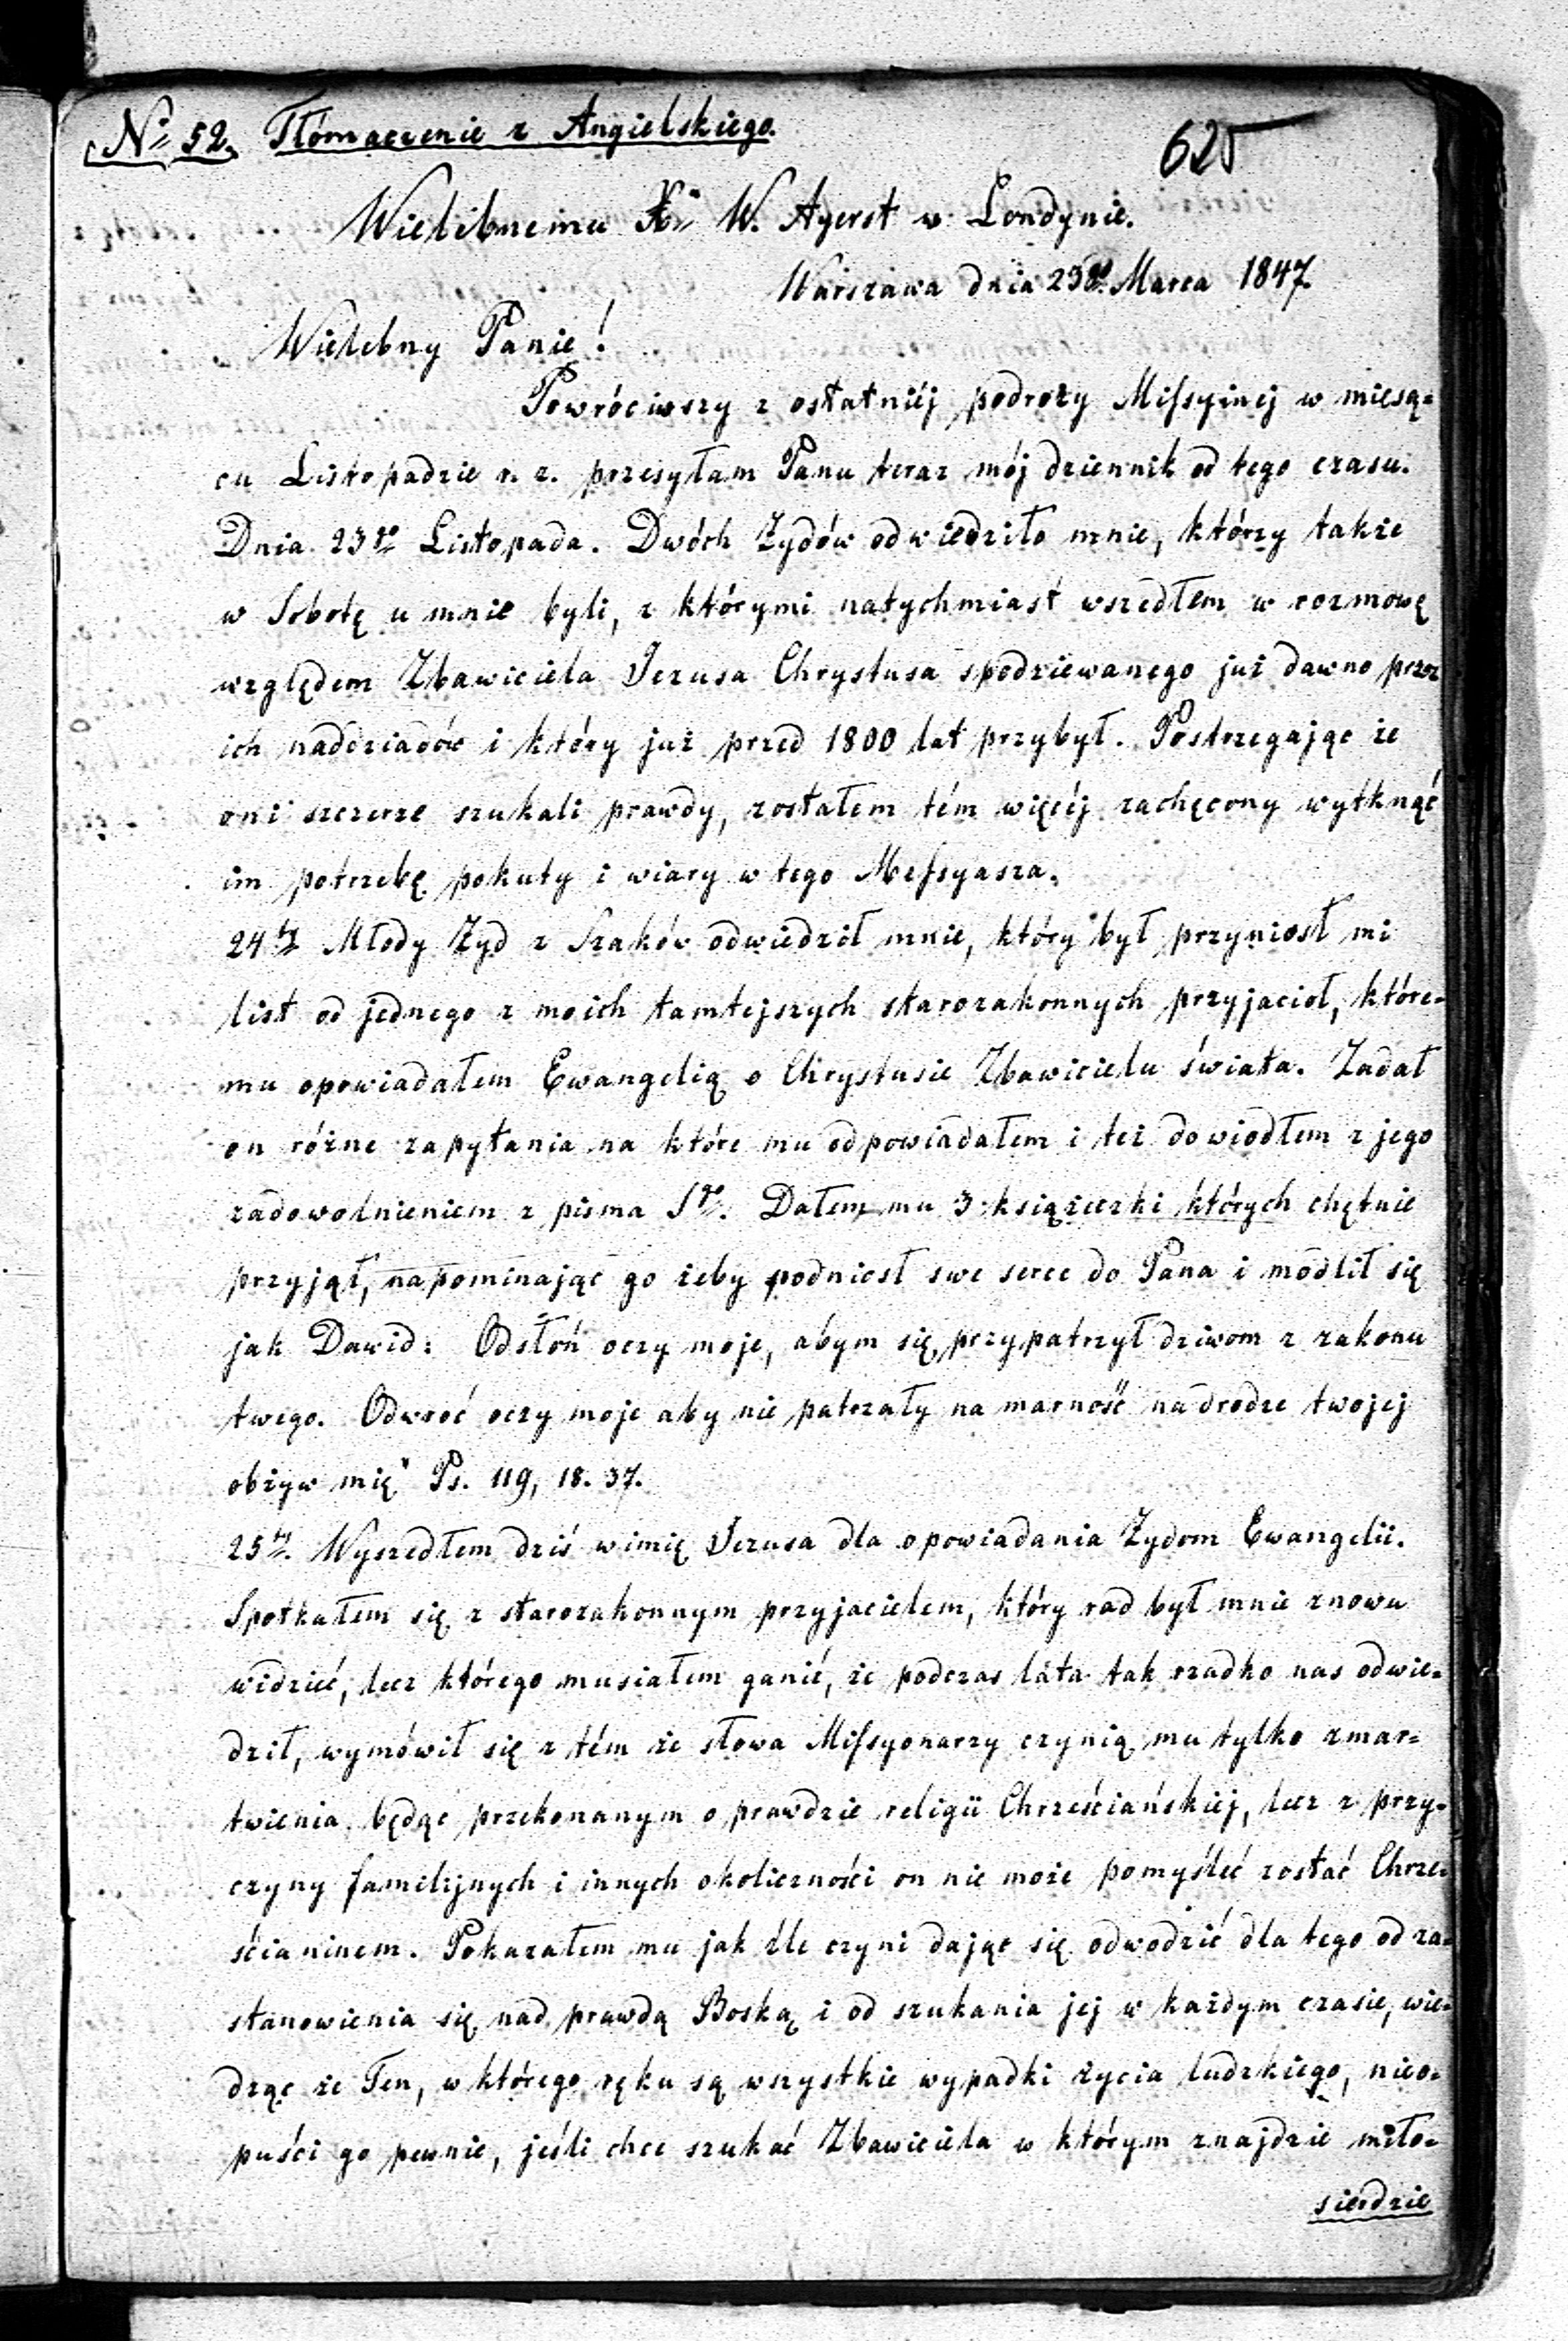 No 52. Tłómaczenie z Angielskiego.
625
Wielebnemu Xu W. Ayerst w Londynie.
Warszawa dnia 23go Marca 1847.
Wielebny Panie!
Powróciwszy z ostatniéj podroży Missyinej w miesą-
cu Listopadzie r. z. przesyłam Panu teraz mój dziennik od tego czasu.
Dnia 23go Listopada. Dwóch Żydów odwiedziło mnie, którzy także
w Sobotę u mnie byli, z którymi natychmiast wszedłem w rozmowę
względem Zbawiciela Jezusa Chrystusa spodziewanego już dawno przez
ich naddziadów i który już przed 1800 lat przybył. Postrzegając że
oni szczerze szukali prawdy, zostałem tém więcéj zachęcony wytknąć
im potrzebę pokuty i wiary w tego Messyasza.
24ty Młody Żyd z Szaków odwiedził mnie, który był przyniosł mi
list od jednego z moich tamtejszych starozakonnych przyjacioł, które-
mu opowiadałem Ewangelią o Chrystusie Zbawicielu świata. Zadał
on różne zapytania na które mu odpowiadałem i też dowiodłem z jego
zadowolnieniem z pisma Sgo. Dałem mu 3 książeczki których chętnie
przyjął, napominając go żeby podniosł swe serce do Pana i modlił się
jak Dawid: Odsłoń oczy moje, abym się przypatrzył dziwom z zakonu
twego. Odwroć oczy moje aby nie patrzały na marność na drodze twojej
obżyw mię" Ps. 119, 18. 37.
25ty. Wyszedłem dziś w imię Jezusa dla opowiadania Żydom Ewangelii.
Spotkałem się z starozakonnym przyjacielem, który rad był mnie znowu
widzieć, lecz którego musiałem ganić, że podczas lata tak rzadko nas odwie-
dził, wymówił się z tém że słowa Missyonarzy czynią mu tylko zmar-
twienia będąc przekonanym o prawdzie religii Chrześciańskiej, lecz z przy-
czyny familijnych i innych okoliczności on nie może pomyśleć zostać Chrze-
ścianinem. Pokazałem mu jak źle czyni dając się odwodzić dla tego od za-
stanowienia się nad prawdą Boską i od szukania jej w każdym czasie, wie-
dząc że Ten, w którego ręku są wszystkie wypadki życia ludzkiego, nieo-
puści go pewnie, jeśli chce szukać Zbawiciela w którym znajdzie miło-
sierdzie